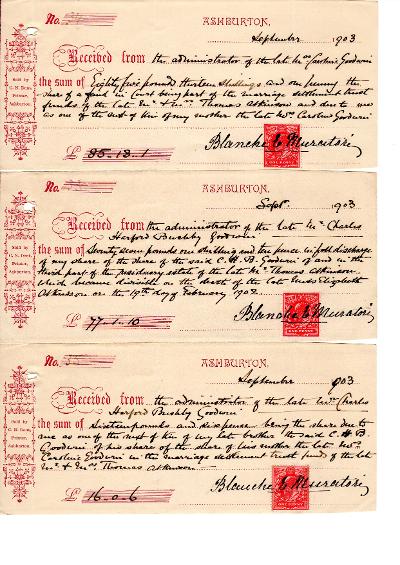 No.
ASHBURTON,
September 1903
Received from the administrator of the late Mrs Caroline Goodwin
the sum of Eighty five pounds thirteen Shillings and one penny the
share of a fund in Court being part of the marriage settlement trust
funds of the late Mr & Mrs Thomas Atkinson and due to me
as one of the next of kin of my mother the late Mrs Caroline Goodwin
Blanche E Muratori
£ 85-13-1
Sold by
Printer,
Ashburton.
No.
ASHBURTON,
Sept. 1903
Received from the administrator of the late Mr Charles
Harford Bushby Goodwin
the sum of Seventy seven pounds one shilling and ten pence in full discharge
of my share of the share of the said C. H. B. Goodwin of and in the
third part of the residuary estate of the late Mr Thomas Atkinson
which became divisible on the death of the late Elizabeth
Atkinson on the 19th day of February 1902
Blanche E Muratori
£ 77-1-10
Sold by
Printer,
Ashburton.
No.
ASHBURTON,
September 1903
Received from the administrator of the late Mr Charles
Harford Bushby Goodwin
the sum of Sixteen pounds and sixpence being the share due to
me as one of the next of kin of my late brother the said C. H. B.
Goodwin of his share of the share of his mother the late Mrs
Caroline Goodwin in the marriage settlement trust funds of the late
Mr & Mrs Thomas Atkinson
Blanche E Muratori
£ 16-0-6
Sold by
Printer,
Ashburton.